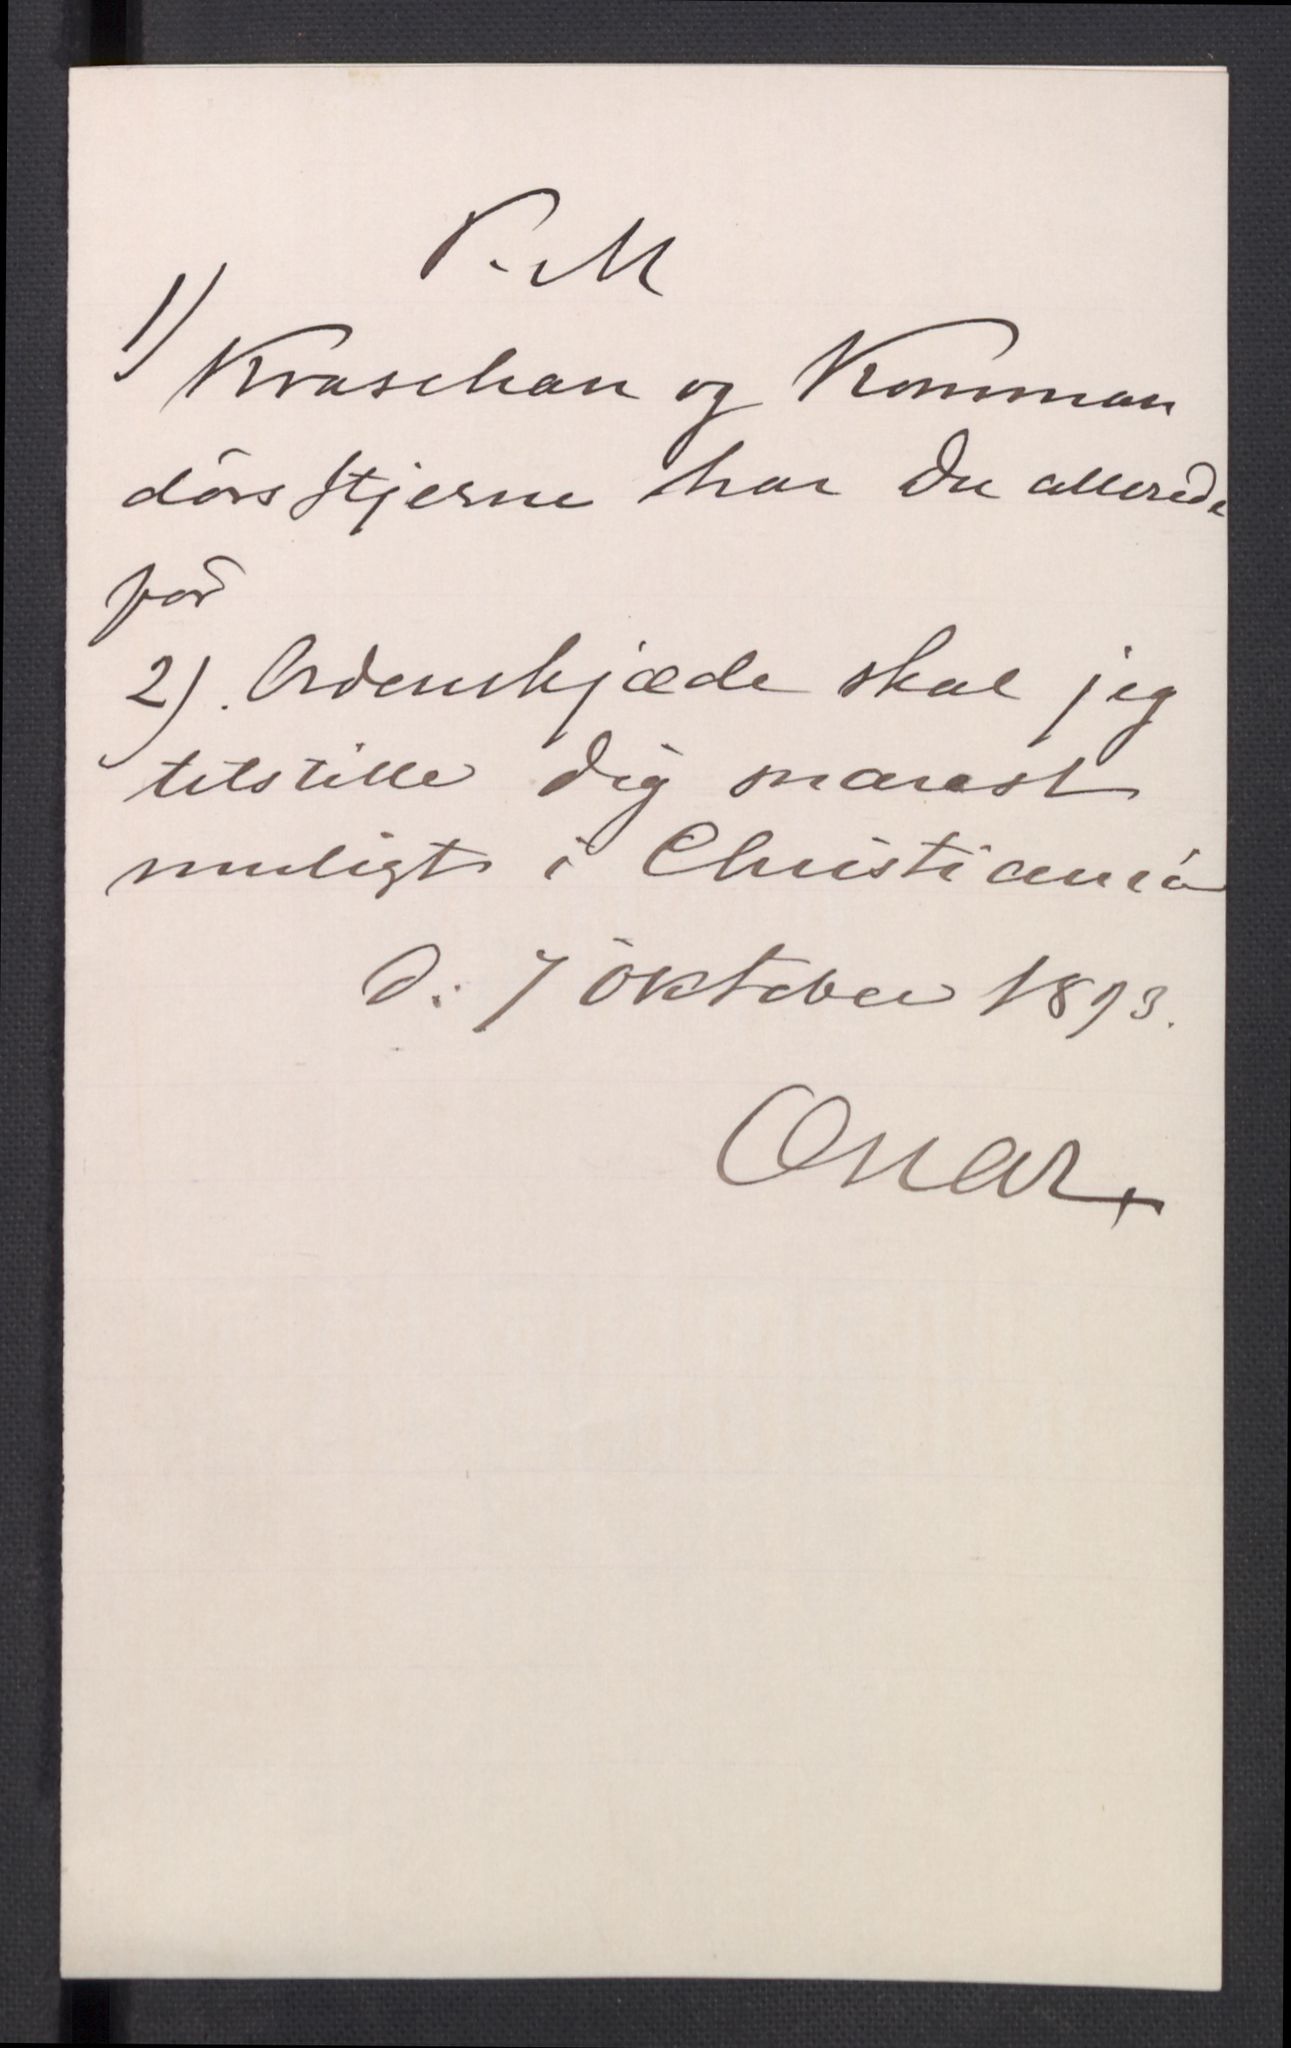 P. M
1)
Kraschan og Komman
dörsstjerne har Du allerede
för
2). Ordenskjæde skal jeg
tilstille Dig snarest
muligt i Christiania
D. 7 Oktober 1893.
Oscar